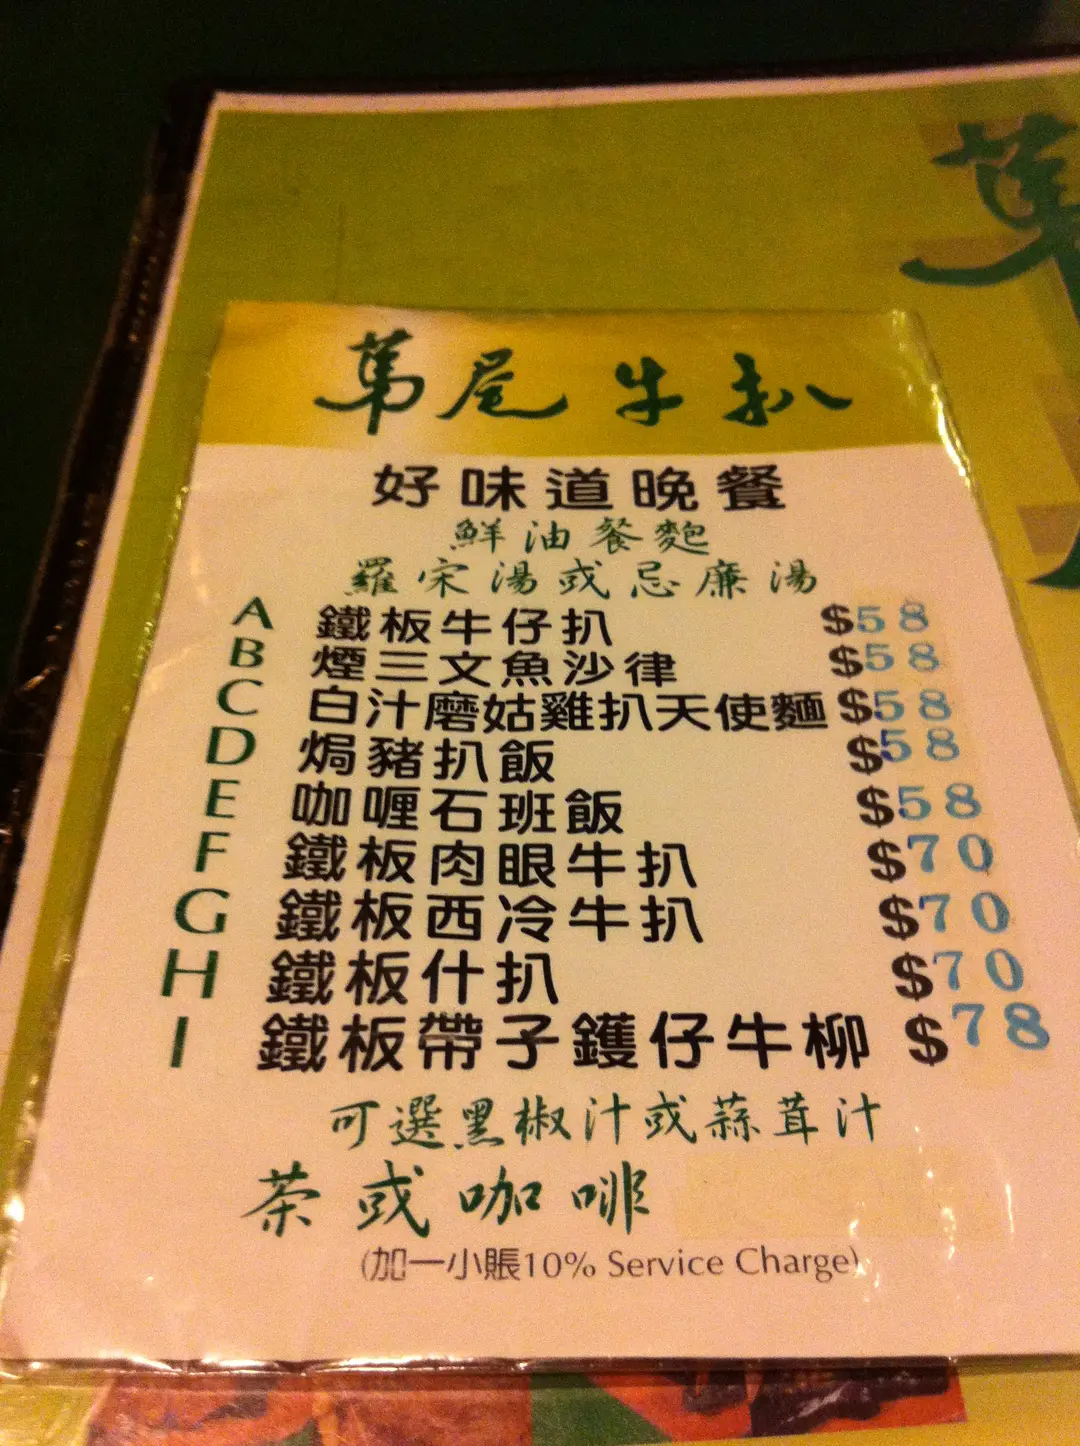 萬尾牛扒
好味道晚餐
鮮油餐麭
羅宋湯或忌廉湯
A 鐵板牛仔扒 $58
B 煙三文魚沙律 $58
C 白汁磨菇雞扒天使麵 $58
D 焗豬扒飯 $58
E 咖喱石班飯 $58
F 鐵板肉眼牛扒 $70
G 鐵板西冷牛扒 $70
H 鐵板什扒 $70
I 鐵板帶子鑊仔牛柳 $78
可選黑椒汁或蒜茸汁
茶或咖啡
(加一小賬10% Service Charge)